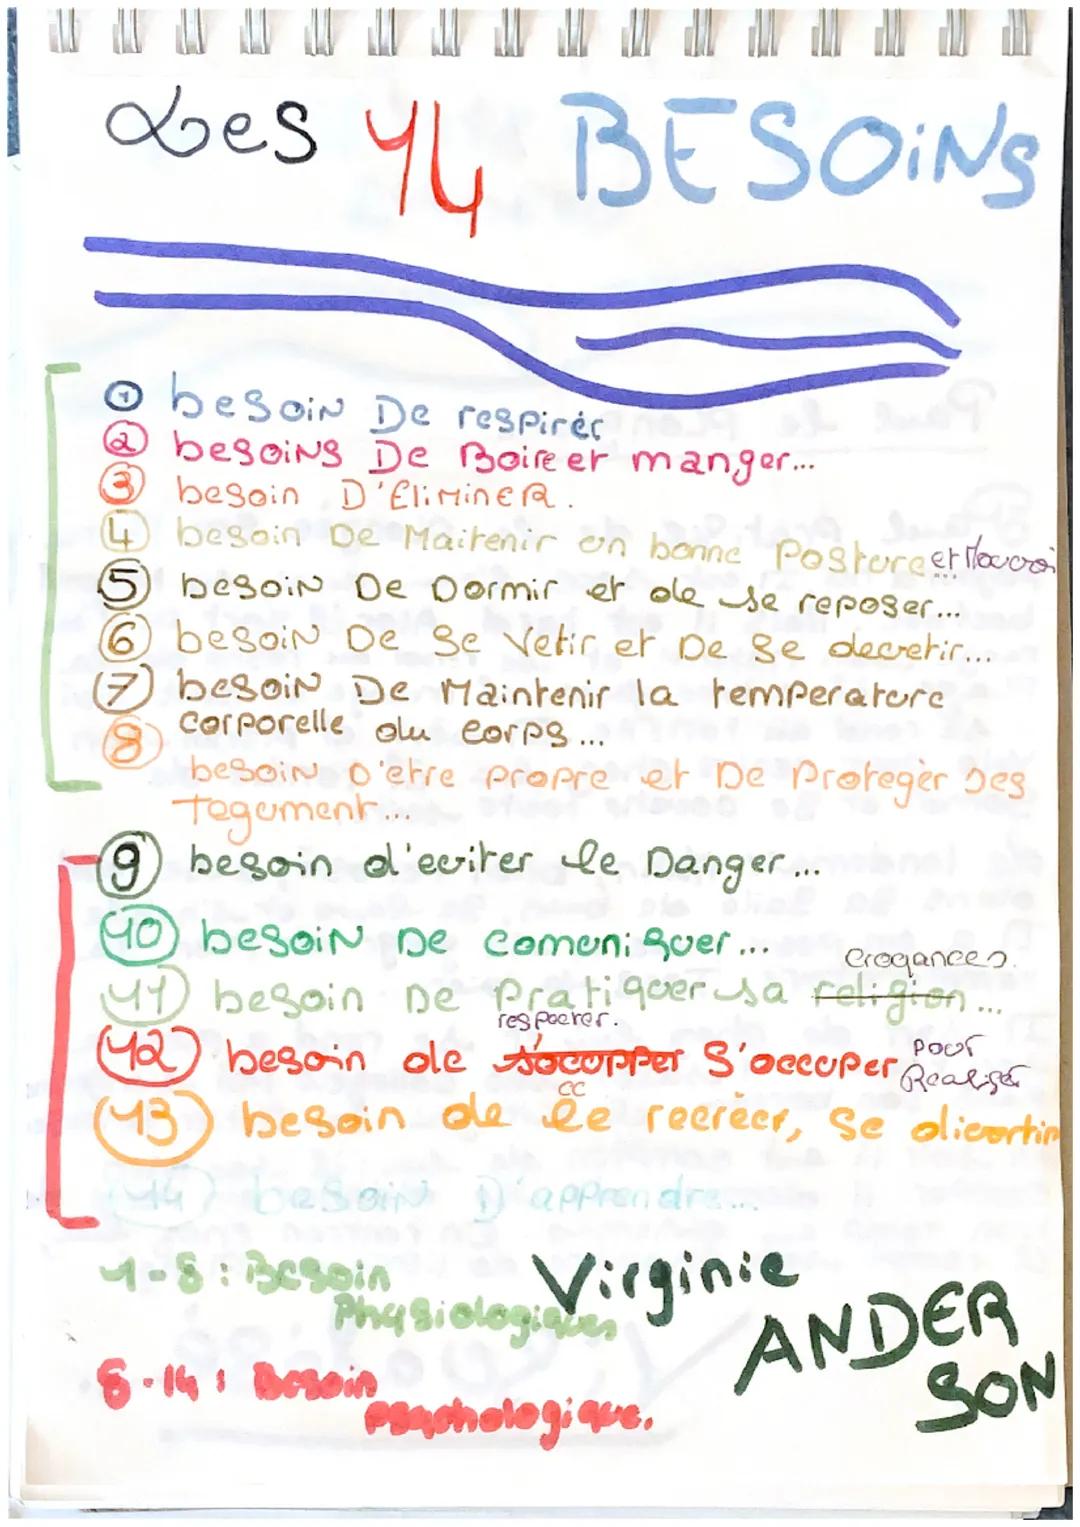 Les 14 BESOiNS
① besoiN De respirér
② besoiNs De Boire et manger...
③ besoin D'EliminER.
④ besoin De Maitenir un bonne Posture et
⑤ besoiN De Dormir et de se reposer...
⑥ besoiN De Se Vetir et De Se devetir...
⑦ besoiN De Maintenir la temperature
corporelle du corps...
⑧ besoiN D'etre propre et De Protegèr Ses
Tegument...
⑨ besoin d'eviter le Danger...
⑩ besoiN De comuniquer...
croyances.
⑪ besoin De Pratiquer sa religion...
respecter.
⑫ besoin de s'occuper S'occuper Pour Realiser
cc
⑬ besoin de se recréer, Se divertir
⑭ besoin D'apprendre...
1-8 : Besoin
Physiologiques
Virginie
ANDER
SON
8-14 : Besoin
psychologique.